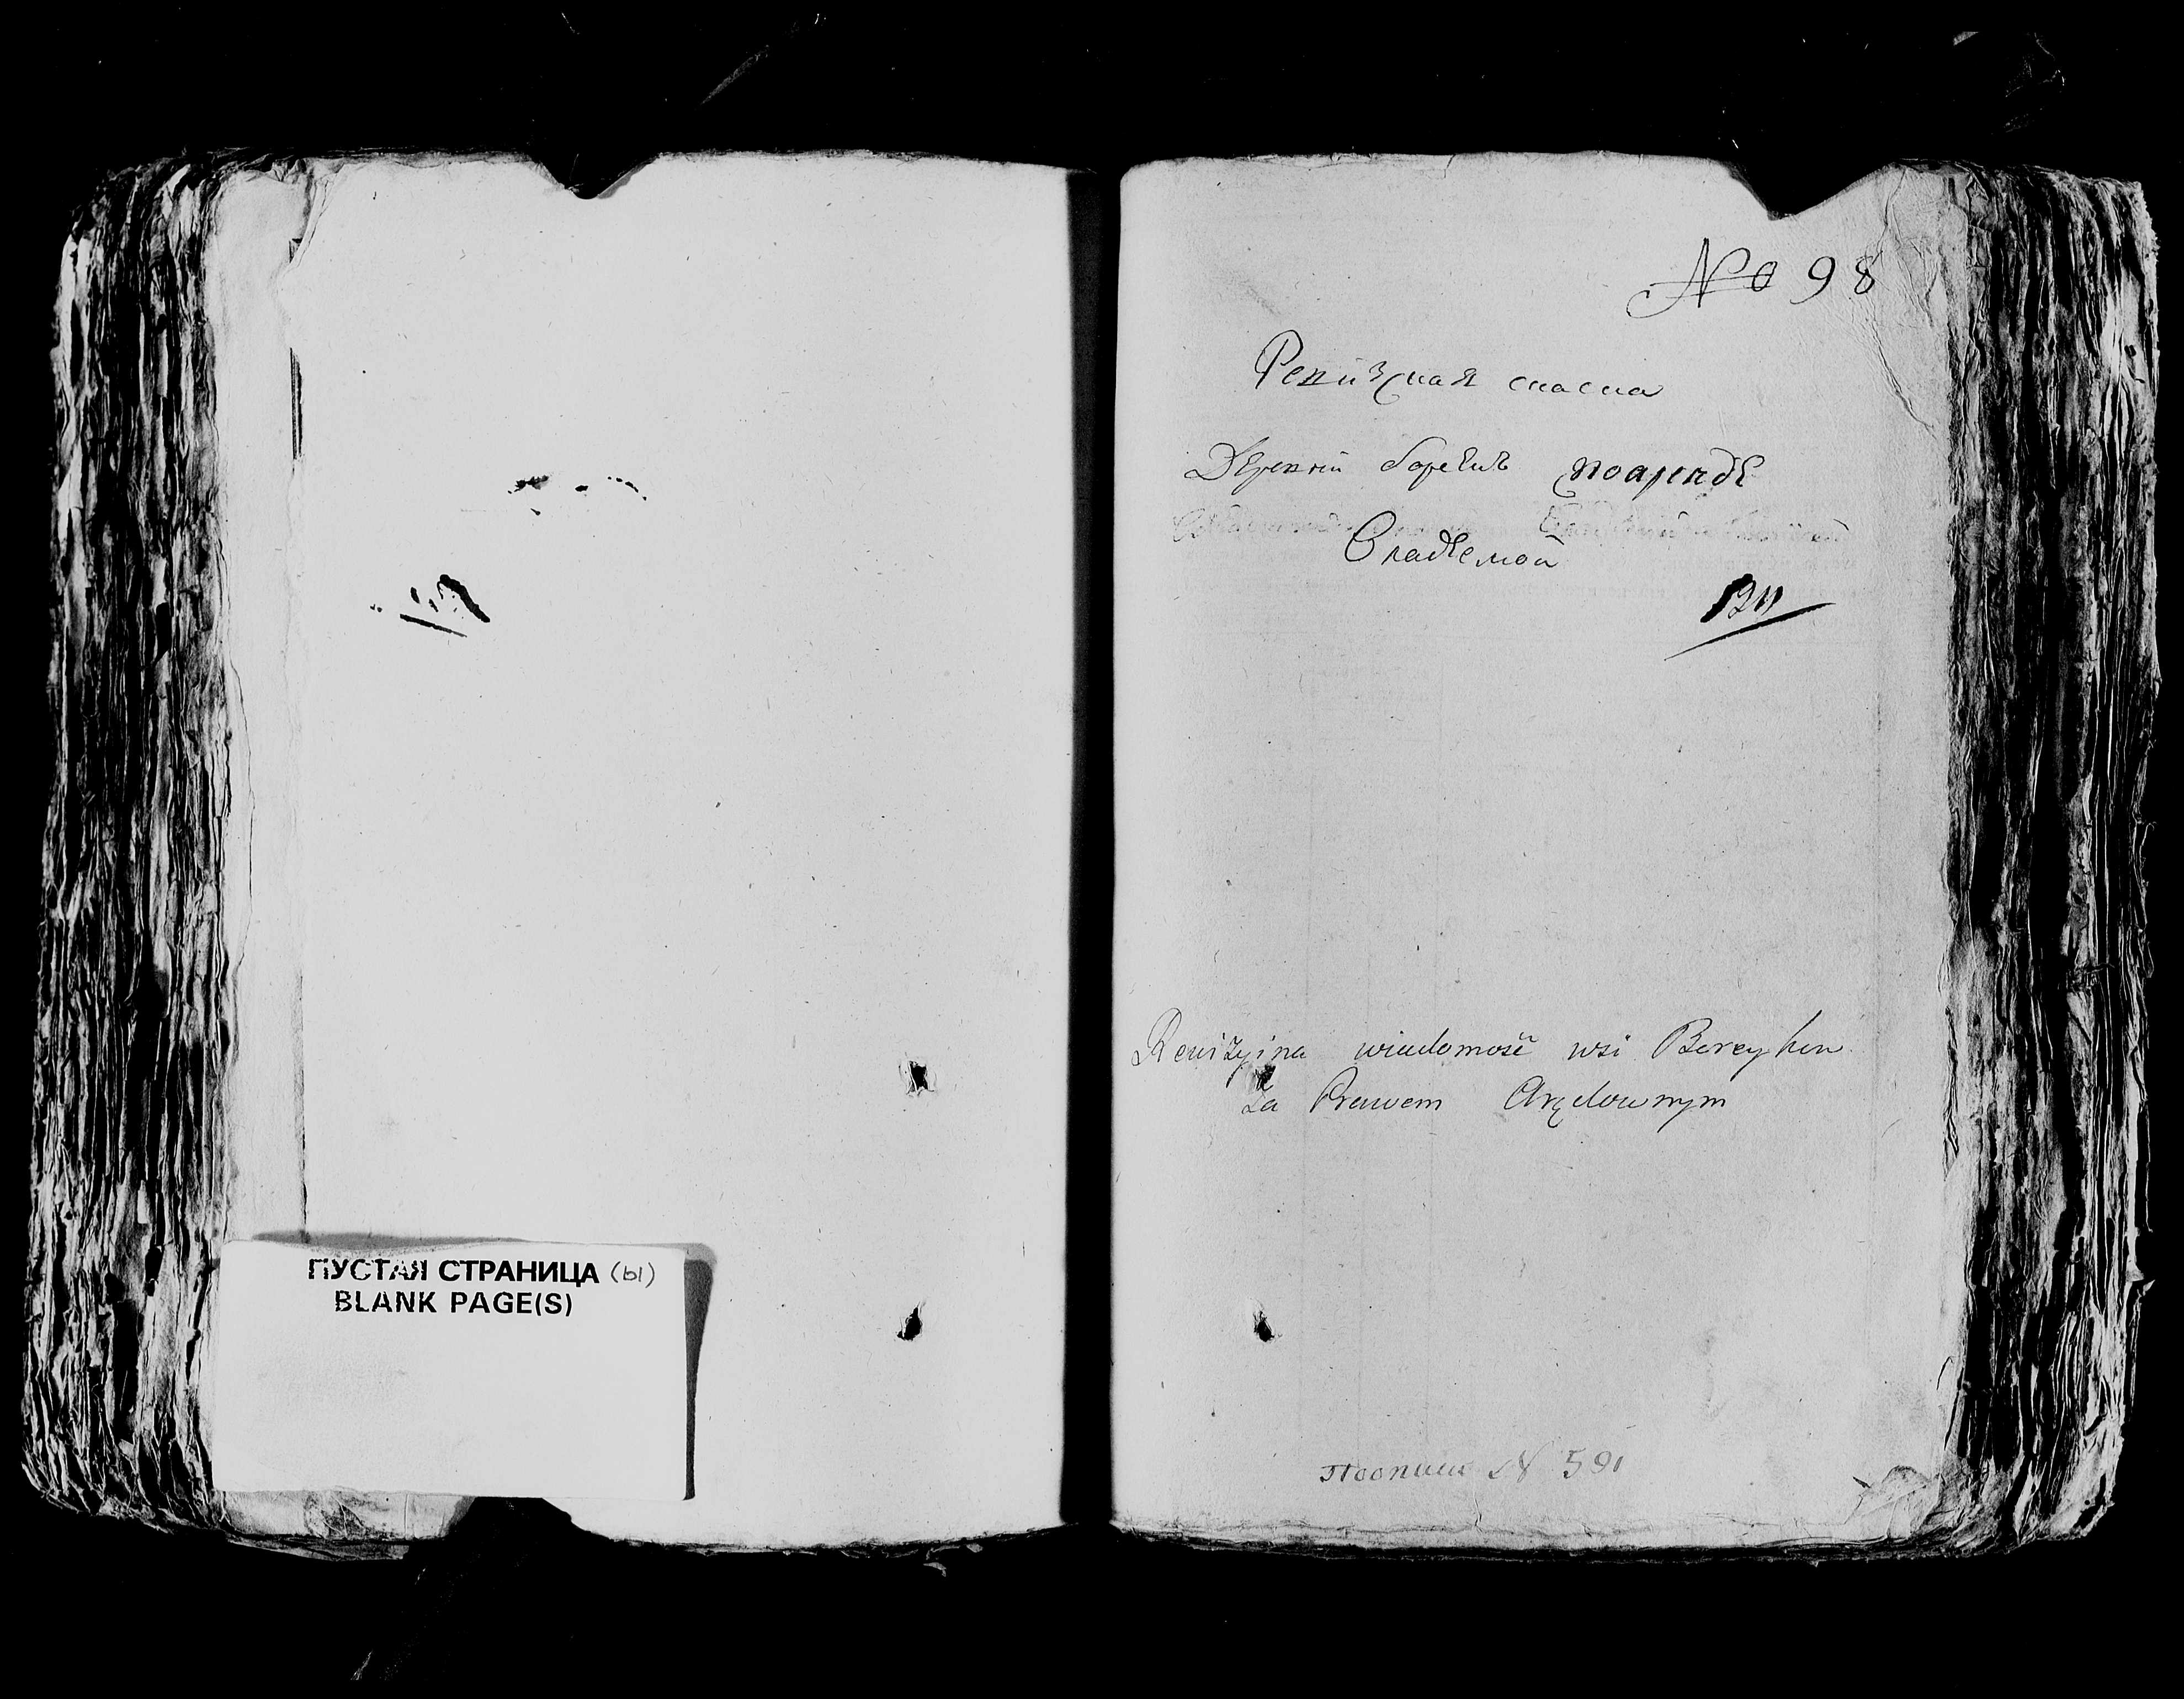 ПУСТАЯ СТРАНИЦА (ы)
BLANK PAGE(S)
№ 98
Ревизская скаска
Деревни поаренде
Владѣемой
Rewizyina wiadomość wsi
Za Prawem Arędownym
Поописи № 591